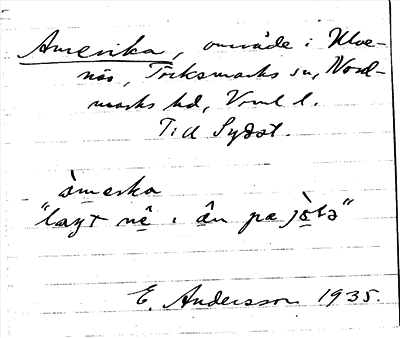 Amerika, område i Ulve-
näs, Töcksmarks sn, Nord-
marks hd, Vrml l.
Till Sydöst.
àmerka
"laŋt nê i ân pa jò̱lə"
E. Andersson 1935.